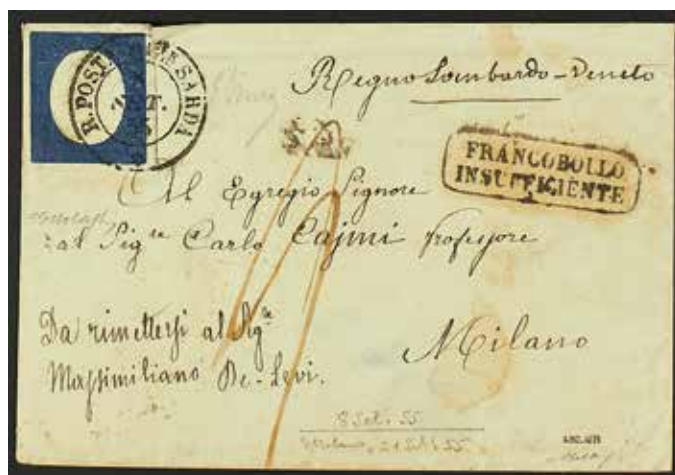 Regno Lombardo-Veneto
FRANCOBOLLO
INSUFFICIENTE
Al Egregio Signore
al Sig.re Carlo Cajmi professore
Milano
Da rimettersi al Sig.re
Massimiliano De-Levi.
8 Set. 55
R. POST SARDA